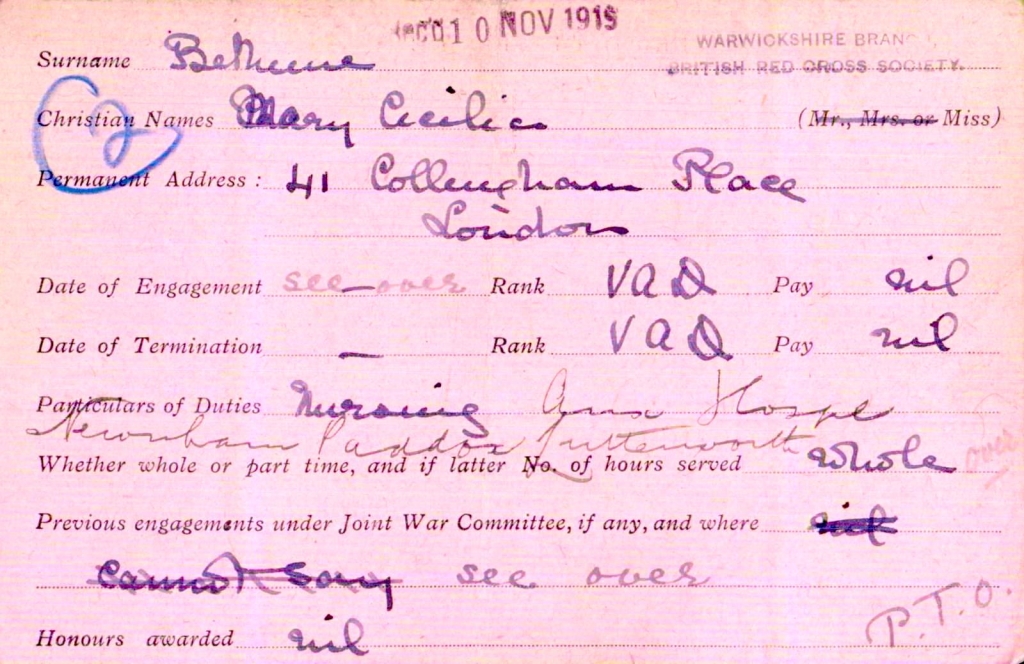 Recd 10 NOV 1919
WARWICKSHIRE BRANCH
BRITISH RED CROSS SOCIETY.
Surname Bethune
2
Christian Names Mary Cecilia (Mr., Mrs. or Miss)
Permanent Address: 41 Collingham Place
London
Date of Engagement see over Rank VAD Pay nil
Date of Termination — Rank VAD Pay nil
Particulars of Duties Nursing Aux Hosp
Newnham Paddox Lutterworth
Whether whole or part time, and if latter No. of hours served whole over
Previous engagements under Joint War Committee, if any, and where nil
cannot say see over
Honours awarded nil
P.T.O.